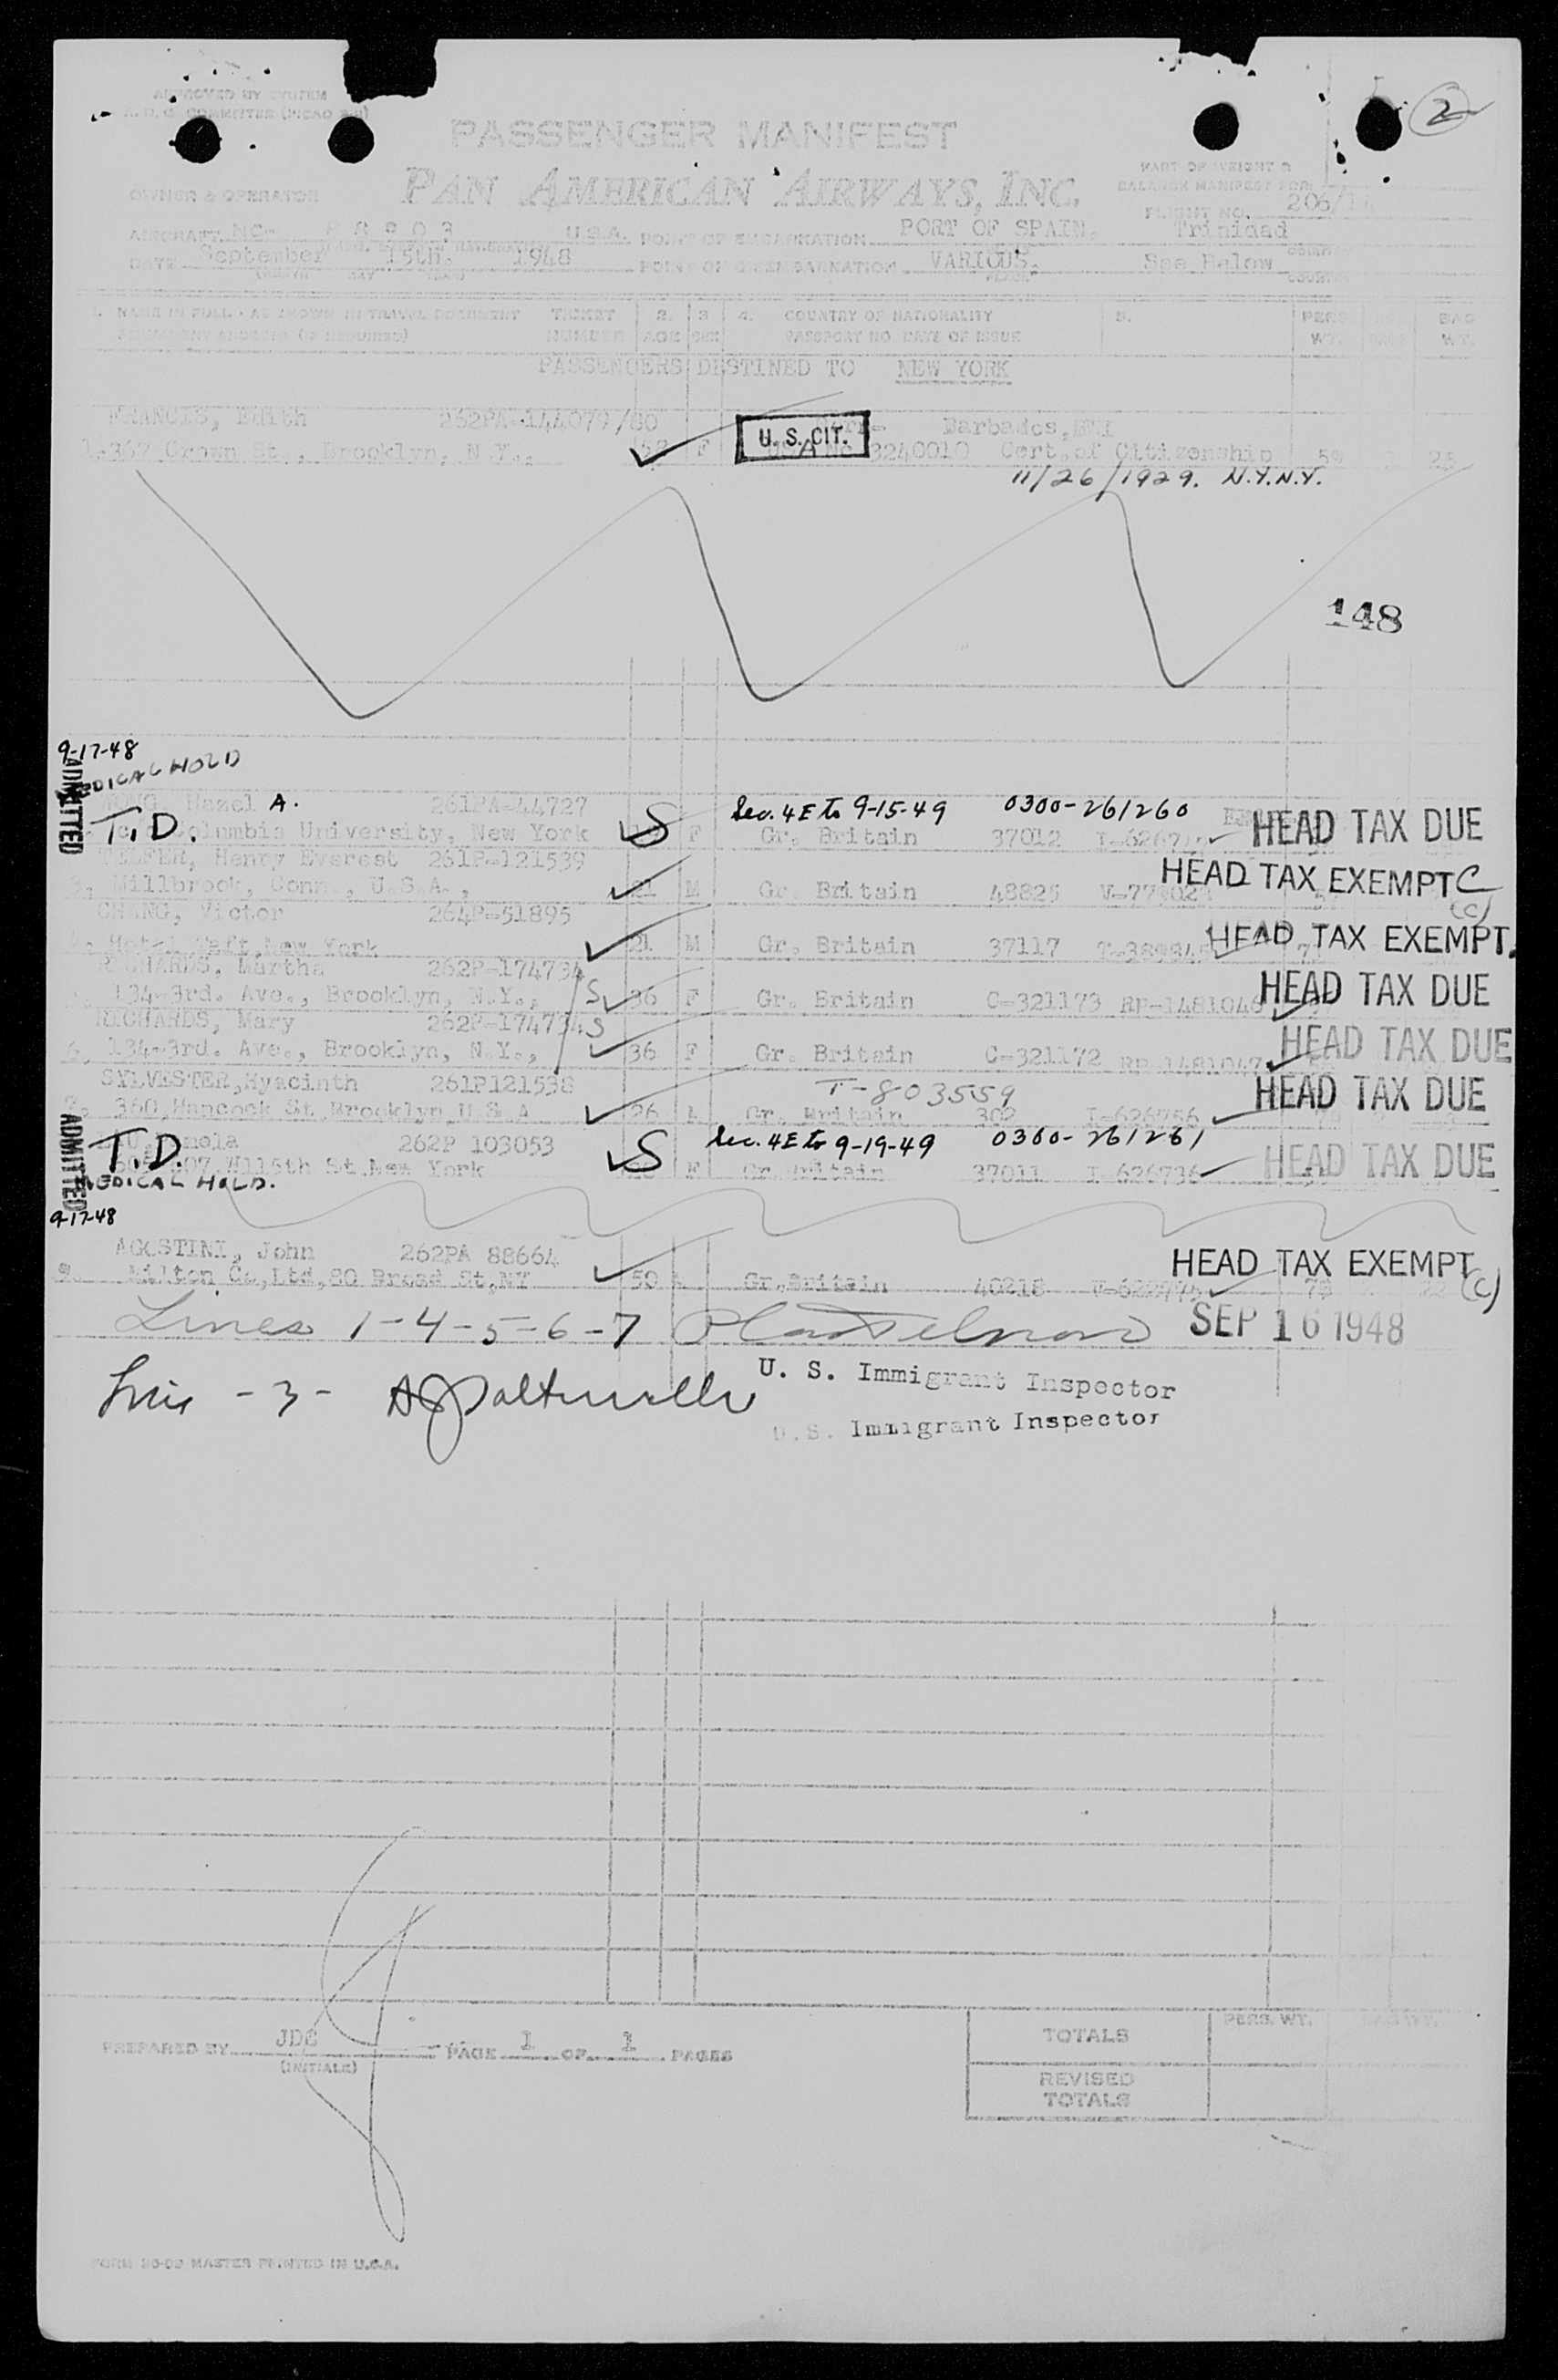 2
APPROVED BY SYSTEM
COMMITTEE (INCAO
PASSENGER MANIFEST
PART OF WEIGHT &
BALANCE MANIFEST FOR
OWNER & OPERATOR
PAN AMERICAN AIRWAYS, INC.
FLIGHT NO. 206/
AIRCRAFT NC- U.S.A. POINT OF EMBARKATION PORT OF SPAIN, Trinidad
DATE September 15th. 1948 POINT OF DISEMBARKATION VARIOUS. See Below
1. NAME IN FULL - AS SHOWN IN TRAVEL DOCUMENT TICKET 2. 3 4. COUNTRY OF NATIONALITY 5. PERS BAG
PERMANENT ADDRESS (IF REQUIRED) NUMBER AGE SEX PASSPORT NO. DATE OF ISSUE WT. WT.
PASSENGERS DESTINED TO NEW YORK
FRANCIS, Edith 262PA-144079/80 Barbados, BWI
1. 367 Crown St., Brooklyn, N.Y., F U.S. CIT. 3240010 Cert. of Citizenship 59 25
11/26/1929. N.Y.N.Y.
148
9-17-48
MEDICAL HOLD
ADMITTED
Hazel A. 261PA-44727 Sec. 4E to 9-15-49 0300-261260
T.D. Columbia University, New York S F Gr. Britain 37012 HEAD TAX DUE
TELFER, Henry Everest 261P-121539
3. Millbrook, Conn., U.S.A., 21 M Gr. Britain 48825 HEAD TAX EXEMPT C
CHANG, Victor 264P-51895 (C)
4. Hotel Taft, New York 21 M Gr. Britain 37117 HEAD TAX EXEMPT.
RICHARDS, Martha 262P-174734
134-3rd. Ave., Brooklyn, N.Y., S 36 F Gr. Britain C-321173 RP-1481046 HEAD TAX DUE
RICHARDS, Mary 262P-174734 S
6. 134-3rd. Ave., Brooklyn, N.Y., 36 F Gr. Britain C-321172 RP-1481047 HEAD TAX DUE
SYLVESTER, Hyacinth 261P121538 T-803559
360, Hancock St, Brooklyn, U.S.A 26 Gr. Britain 302 I-626756 HEAD TAX DUE
ADMITTED
262P 103053 Sec. 4E to 9-19-49 0300-261261
T.D. W115th St, New York S F Gr. Britain 37011 I-626736 HEAD TAX DUE
MEDICAL HOLD.
9-17-48
AGOSTINI, John 262PA 88664
9. Milton Co, Ltd, 80 Broad St, NY 50 Gr. Britain 40218 HEAD TAX EXEMPT (C)
Lines 1-4-5-6-7 SEP 16 1948
U. S. Immigrant Inspector
Line - 3 -
U.S. Immigrant Inspector
PREPARED BY JDS PAGE 1 OF 1 PAGES
(INITIALS)
TOTALS PERS. WT.
REVISED
TOTALS
MASTER PRINTED IN U.S.A.